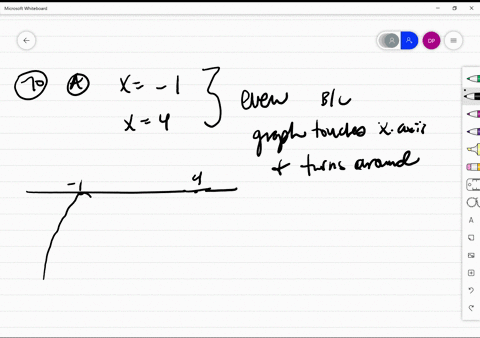 Microsoft Whiteboard
DP
70 A x = -1
x = 4
even B/C
graph touches x-axis
& turns around
-1 4